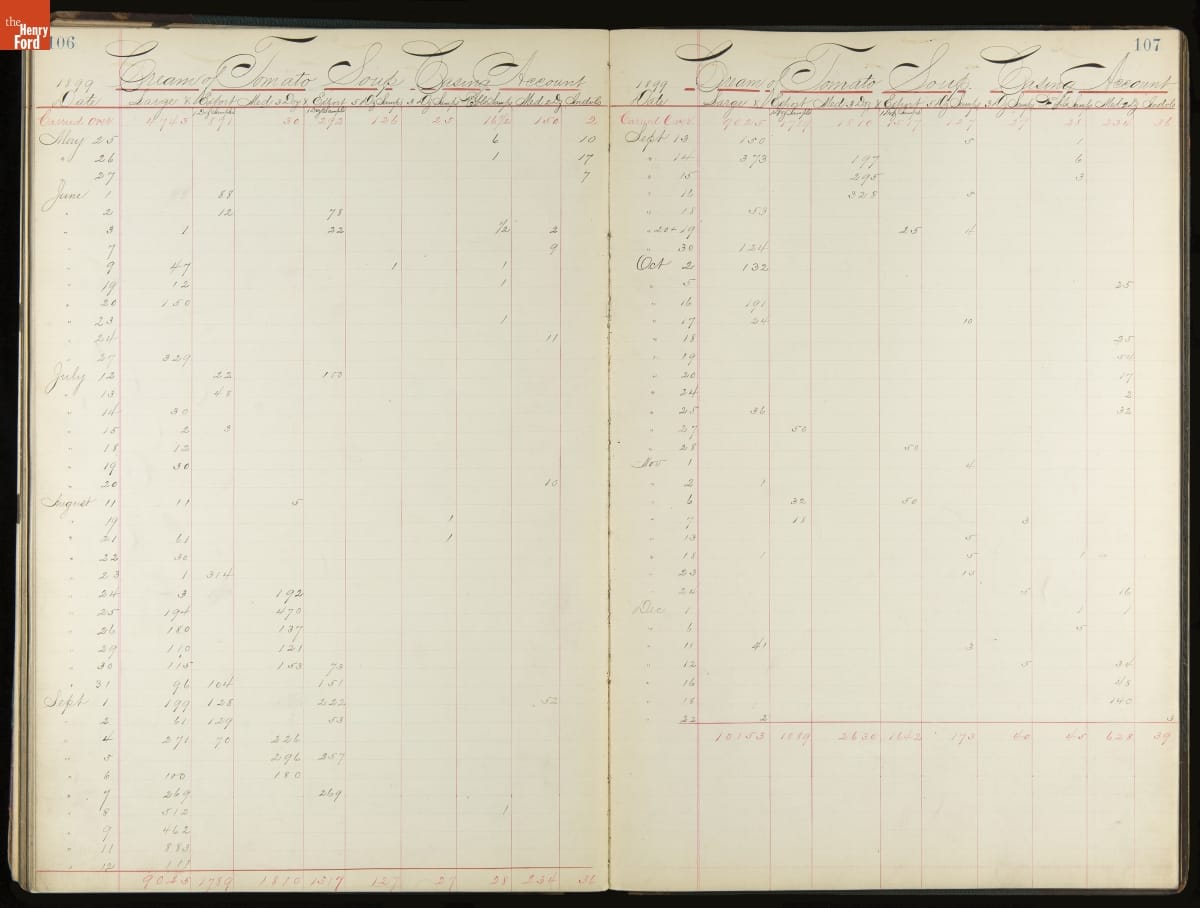 the Henry Ford
106
Cream of Tomato Soup Casing Account
1899
Date Large & Export Med. 3 Dz & Export 5 Dz
Carried Over 4743 891 30 292 126 25 16½ 150 2
May 25 6 10
" 26 1 17
27 7
June 1 88
" 2 12 78
" 3 1 22 ½ 2
" 7 9
" 9 47 1 1
" 19 12 1
" 20 150
" 23 1
" 24 11
" 27 329
July 12 22 150
" 13 48
" 14 30
" 15 2 3
" 18 12
" 19 30
" 20 10
August 11 11 5
" 19 1
" 21 61 1
" 22 30
" 23 1 314
" 24 3 192
" 25 194 470
" 26 180 137
" 29 110 121
" 30 115 153 73
" 31 96 104 151
Sept 1 199 128 222 52
" 2 61 129 53
" 4 271 70 226
" 5 296 357
" 6 100 180
" 7 269 269
" 8 512 1
" 9 462
" 11 883
" 12 111
9025 1789 1810 1517 127 27 28 234 36
107
Cream of Tomato Soup Casing Account
1899
Date Large & Export Med 3 Dz & Export 5 Dz
Carried Over 9025 1789 1810 1517 127 27 234 36
Sept 13 150 5 1
" 14 373 197 6
" 15 295 3
" 16 328 5
" 18 53
" 20+19 25 4
" 30 124
Oct 2 132
" 5 25
" 16 191
" 17 24 10
" 18 25
" 19
" 20 17
" 24 2
" 25 36 32
" 27 50
" 28 50
Nov 1 4
" 2 1
" 6 32 50
" 7 18 3
" 13 5
" 18 1 5 1
" 23 10
" 24 5 16
Dec 1 1 1
" 6 5
" 11 41 3
" 12 5 34
" 16 48
" 18 140
" 22 2 3
10153 1889 2630 1642 173 40 45 628 39